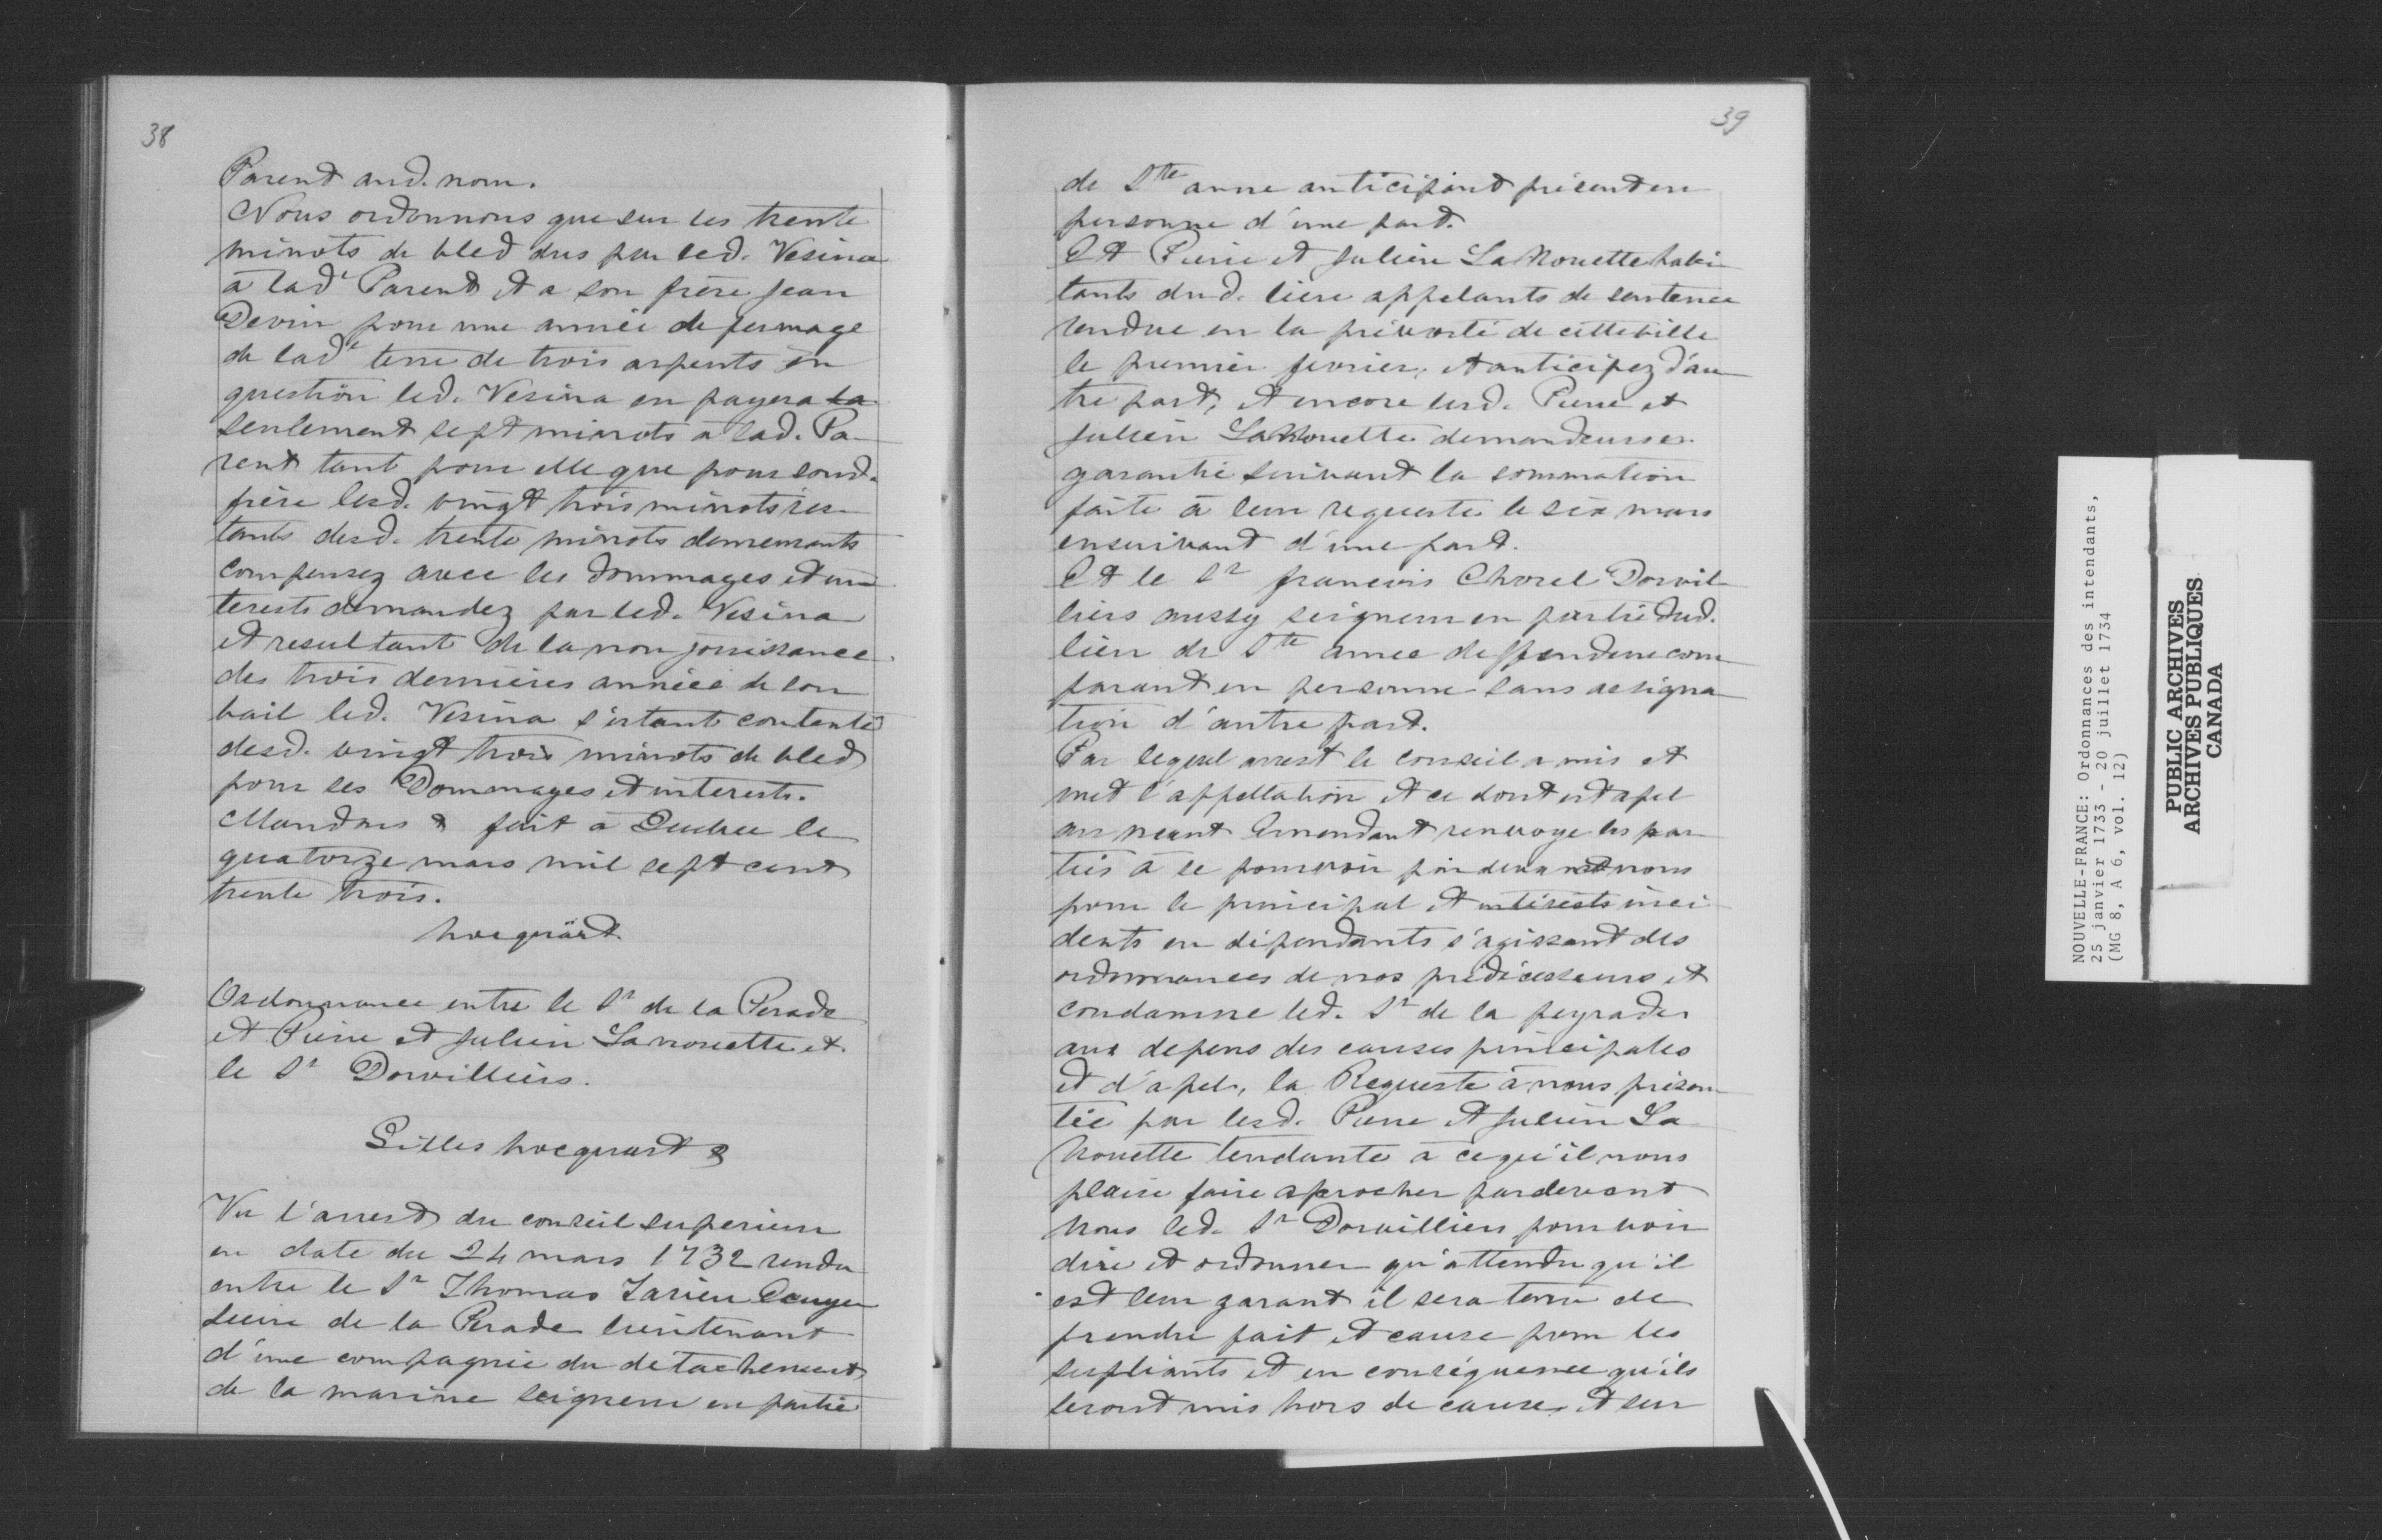 38
Parent aud. nom.
Nous ordonnons que sur les trente
minots de bled dus par led. Vesina
à lad.e Parent et a son frère Jean
Devin pour une année de fermage
de lad.e terre de trois arpents en
question led. Vesina en payera la
seulement sept minots à lad. Pa-
rent tant pour elle que pour soud.
frère lesd. vingt trois minots res-
tants desd. trente minots demeurants
compensez avec les dommages et in
terests demandez par led. Vesina
et resultant de la non jouissance
des trois dernières années de son
bail led. Vesina s'estant contenté
desd. vingt trois minots de bled
pour ses Dommages et interests.
Mandons & fait à Quebec le
quatorze mars mil sept cent
trente trois.
hocquart
Ordonnance entre le Sr de la Perade
et Pierre et Julien Lanouette et
le Sr Dorvilliers.
Gilles hocquart &
Vu l'arrest du conseil superieur
en date du 24 mars 1732 rendu
entre le Sr Thomas Tarieu
de la Perade lieutenant
d'une compagnie du détachement
de la marine seigneur en partie
39
de Ste anne anticipant présent en
personne d'une part.
Et Pierre et Julien LaNouette habi-
tants dud. lieu appelants de sentence
rendue en la prévosté de cette ville
le premier fevrier, et anticipez d'au
tre part, et encore lesd. Pierre et
Julien LaNouette demandeurs en
garantie suivant la sommation
faite à leur requeste le six mars
ensuivant d'une part.
Et le Sr francois Chorel Dorvil-
liers aussy seigneur en partie dud.
lieu de Ste anne deffendeur com-
parant en personne sans assigna
tion d'autre part.
Par lequel arrest le conseil a mis et
met l'appellation et ce dont est apel
au neant Emendant renvoye les par
ties à se pourvoir par devant nous
pour le principal et intérests inci-
dents en dépendants s'agissant des
ordonnances de nos prédécesseurs et
condamne led. Sr de la peyrade
aux depens des causes principales
et d'apel, la Requeste à nous présen-
tée par lesd. Pierre et Julien La-
Nouette tendante à ce qu'il nous
plaise faire aprocher pardevant
nous led. Sr Dorvilliers pour voir
dire et ordonner qu'attendu qu'il
est leur garant il sera tenu de
prendre fait et cause pour les
supliants et en conséquence qu'ils
seront mis hors de cause, et sur
NOUVELLE-FRANCE: Ordonnances des intendants,
25 janvier 1733 - 20 juillet 1734
(MG 8, A 6, vol. 12)
PUBLIC ARCHIVES
ARCHIVES PUBLIQUES
CANADA